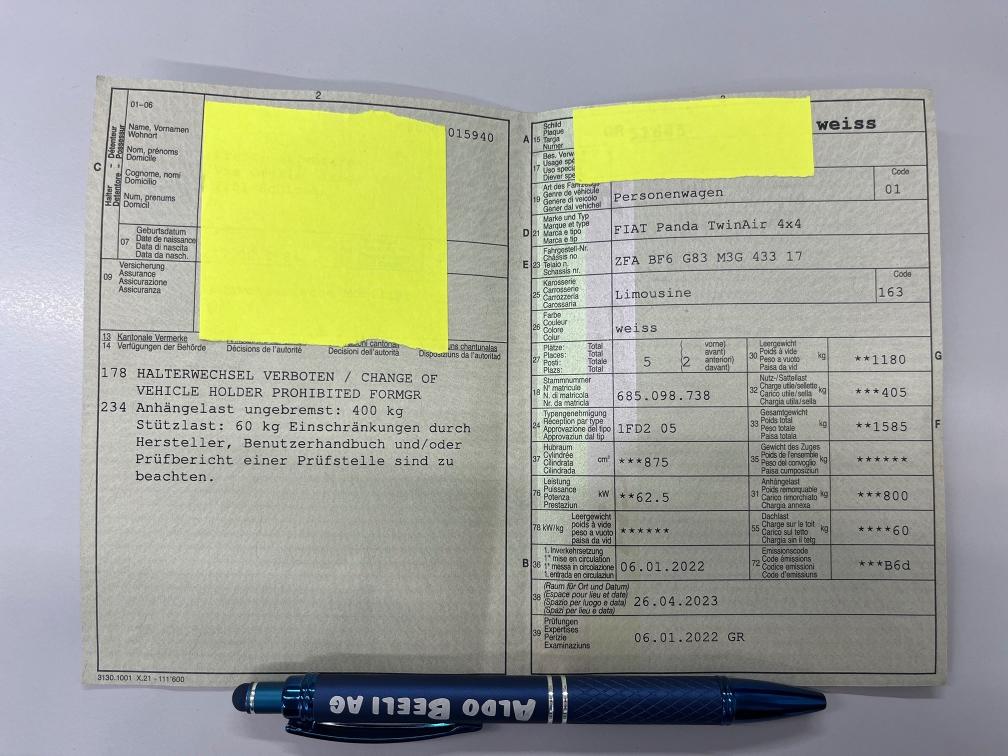 2
01-06
Halter Détenteur
Detentore Possessur
C
Name, Vornamen
Wohnort
Nom, prénoms
Domicile
Cognome, nomi
Domicilio
Num, prenums
Domicil
015940
07
Geburtsdatum
Date de naissance
Data di nascita
Data da nasch.
09
Versicherung
Assurance
Assicurazione
Assicuranza
13 Kantonale Vermerke
14 Verfügungen der Behörde
Décisions de l'autorité
Decisioni dell'autorità
Disposiziuns da l'autoritad
178 HALTERWECHSEL VERBOTEN / CHANGE OF
VEHICLE HOLDER PROHIBITED FORMGR
234 Anhängelast ungebremst: 400 kg
Stützlast: 60 kg Einschränkungen durch
Hersteller, Benutzerhandbuch und/oder
Prüfbericht einer Prüfstelle sind zu
beachten.
3130.1001 X.21 - 111'600
A 15
Schild
Plaque
Targa
Numer
weiss
17
Bes. Verw
Usage spé
Uso specia
Diever spe
19
Art des Fahrzeugs
Genre de véhicule
Genere di veicolo
Gener dal vehichel
Personenwagen
Code
01
D 21
Marke und Typ
Marque et type
Marca e tipo
Marca e tip
FIAT Panda TwinAir 4x4
E 23
Fahrgestell-Nr.
Châssis no
Telaio n.
Schassis nr.
ZFA BF6 G83 M3G 433 17
25
Karosserie
Carrosserie
Carrozzeria
Carossaria
Limousine
Code
163
26
Farbe
Couleur
Colore
Colur
weiss
27
Plätze: Total
Places: Total
Posti: Totale
Plazs: Total
5
(2
vorne)
avant)
anteriori)
davant)
30
Leergewicht
Poids à vide
Peso a vuoto
Paisa da vid
kg
**1180
G
18
Stammnummer
N° matricule
N. di matricola
Nr. da matricla
685.098.738
32
Nutz-/Sattellast
Charge utile/sellette
Carico utile/sella
Chargia utila/sella
kg
***405
24
Typengenehmigung
Réception par type
Approvazione del tipo
Approvaziun dal tip
1FD2 05
33
Gesamtgewicht
Poids total
Peso totale
Paisa totala
kg
**1585
F
37
Hubraum
Cylindrée
Cilindrata
Cilindrada
cm³
***875
35
Gewicht des Zuges
Poids de l'ensemble
Peso del convoglio
Paisa cumposiziun
kg
******
76
Leistung
Puissance
Potenza
Prestaziun
kW
**62.5
31
Anhängelast
Poids remorquable
Carico rimorchiato
Chargia annexa
kg
***800
78 kW/kg
Leergewicht
poids à vide
peso a vuoto
paisa da vid
******
55
Dachlast
Charge sur le toit
Carico sul tetto
Chargia sin il tetg
kg
****60
B 36
1. Inverkehrsetzung
1re mise en circulation
1a messa in circolazione
1. entrada en circulaziun
06.01.2022
72
Emissionscode
Code émissions
Codice emissioni
Code d'emissiuns
***B6d
38
(Raum für Ort und Datum)
(Espace pour lieu et date)
(Spazio per luogo e data)
(Spazi per lieu e data)
26.04.2023
39
Prüfungen
Expertises
Perizie
Examinaziuns
06.01.2022 GR
ALDO BEELI AG